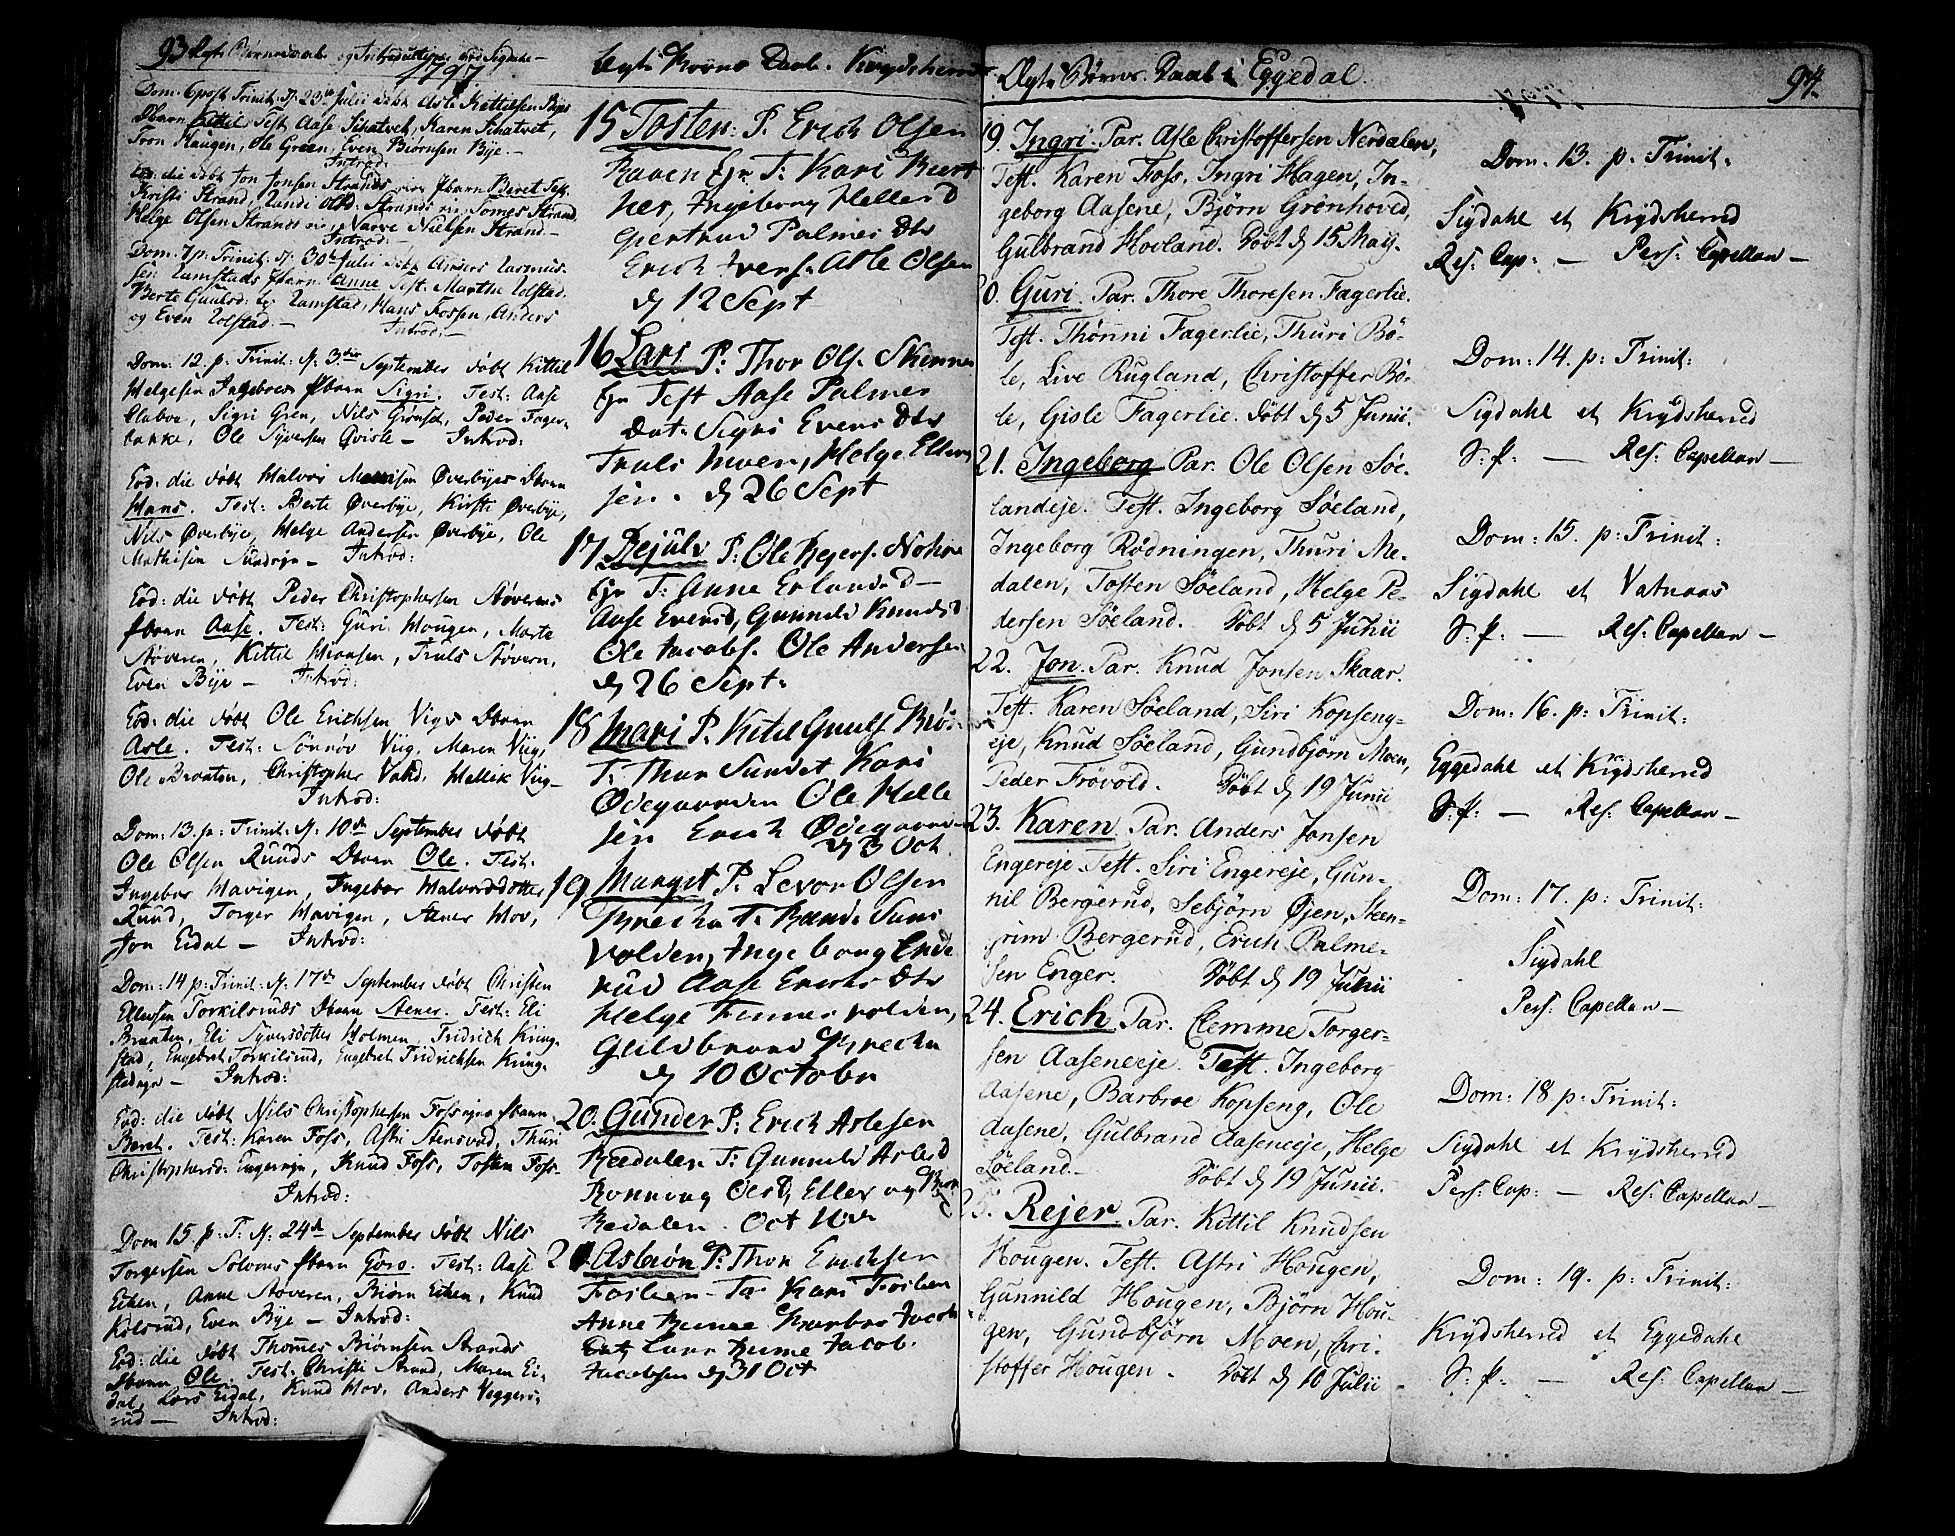 93 Ægte Børnedaab og Introductioner ved Sigdahl
1797
Dom. 6 post Trinit: d. 23de Julii døbt Asle Kittelsen Byes
Dbarn Kittil, Test. Aase Skatvet, Karen Skatvet,
Tron Haugen, Ole Green, Even Biørnsen Bye.
Introd:
Eod. die døbt Jon Jonsen Strands Pbarn Beret Test.
Kristi Strand, Strand,
Helge Olsen Strands Narve Nielsen Strand.
Introd:
Dom. 7 p. Trinit: d. 30te Julii døbt Anders Rasmus-
sen Ramstads Pbarn Anne Test. Marthe Kolstad.
Berte Ramstad, Hans Fossen, Anders
og Even Kolstad. Introd.
Dom: 12. p. Trinit: d. 3die September døbt Kittil
Helgesen Ingeboes Pbarn Sigri. Test: Aase
Sigri Gren, Nils Grønset, Peder Fager-
bakke, Ole Syversen Qvisle — Introd:
Eod: die døbt Halvor Overbyes Dbarn
Hans. Test: Berte Øverbye, Kirsti Øverbye,
Nils Øverbye, Helge Andersen Øverbye, Ole
Mathisen — Introd:
Eod: die døbt Peder Christophersen Støverens
Pbarn Aase. Test: Guri Hougen, Marte
Støveren, Kittil Hiansen, Truls Støvern,
Even Bije — Introd:
Eod: die døbt Ole Erichsen Viigs Dbarn
Asle. Test: Sønnøv Viig, Maren Viig,
Ole Braaten, Christopher Vald, Hellik Viig —
Introd:
Dom: 13. p: Trinit: d. 10de September døbt
Ole Olsen Ruuds Dbarn Ole. Test:
Ingebor Havigen, Ingebor Halvorsdotter
Ruud, Torger Havigen, Stener Hov,
Jon Eidal — Introd:
Dom: 14 p: Trinit: d. 17de September døbt Christen
Ellevsen Torkilsruds Dbarn Stener. Test: Eli
Braaten, Eli Syversdotter Holmen, Fridrich Kring-
stad, Engebret Torkilsrud, Engebret Fridrichsen Kring-
stadeje — Introd:
Eod: die døbt Nils Christophersen Fosseje Pbarn
Beret. Test: Karen Foss, Astri Stensrud, Thuri
Christophersd: Engereje, Knud Foss, Tosten Foss.
Introd:
Dom 15. p. T: d. 24de September døbt Nils
Torgersen Solems Pbarn Goro. Test: Aase
Eiken, Anne Støveren, Biørn Eiken, Knud
Kolsrud, Even Bye — Introd:
Eod: die døbt Thomes Biørnsen Strands
Dbarn Ole. Test: Christi Strand, Maren Ei-
dal, Lars Eidal, Knud Hov, Anders Veggers-
rud — Introd:
Ægte Børns Daab. Krydsherred
15 Tosten: P. Erich Olsen
Raaen Eje T: Kari Bert
hes, Ingeborg Hellesd
Giertrud Palmes Dtr
Erich Ivers. Asle Olsen
d 12 Sept
16 Lars P: Thor Ols. Skinnes
Eje Test Aase Palmes
Dat. Sigri Evens Dtr
Truls Moen, Helge Ellens
sen. d 26 Sept
17 Rejulv P: Ole Rejers. Nohre
Eje T: Anne Erlandsd —
Aase Evensd, Gunneld Knudsd
Ole Jacobs. Ole Andersen
d 26 Sept.
18 Mari P. Kitel Gunls Brøs
T: Thor Sundet Kari
Ødegaarden Ole Helle
sen Erich Ødegaarden
d 3 Oct.
19 Margit P. Levor Olsen
T. Rand. Suns
volden, Ingeborg Ende
rud Aase Erichs Dtr
Helge Finnesvolden,
Guldbrand
d 10 Octobr
20. Gunder P: Erich Aslesen
Reedalen T: Gunneld Aslesd
Ronning Oles D, Ellef og Thor
Redalen. Oct 10de
21 Asbiøn P: Thor Erichsen
Foslien — T: Kari Foslien
Anne Rime Jacob
Dat, Lars Rime Jacob.
Jacobsen d 31 Oct
Ægte Børns Daab i Eggedal
94.
19. Ingri. Par. Asle Christoffersen Nerdalen,
Test. Karen Foss, Ingri Hagen, In-
geborg Aasene, Björn Grönhoved,
Gulbrand Hovland. Döbt d 15 Maij.
20. Guri. Par. Thore Thoresen Fagerlie.
Test. Thönni Fagerlie, Thuri Bö-
le, Live Rugland, Christoffer Bö-
le, Gisle Fagerlie. Döbt d 5 Junii.
21. Ingeborg Par. Ole Olsen Söe-
landeje. Test. Ingeborg Söeland,
Ingeborg Rödningen, Thuri Me-
dalen, Tosten Söeland, Helge Pe-
dersen Söeland. Döbt d 5 Junii
22. Jon. Par. Knud Jonsen Skaar.
Test. Karen Söeland, Siri Kopseng-
eje, Knud Söeland, Gundbjörn Moen,
Peder Frövold. Döbt d 19 Junii
23. Karen Par. Anders Jonsen
Engereje Test. Siri Engereje, Gun-
nil Bergerud, Sebjörn Øjen, Steen-
grim Bergerud, Erich Palme-
sen Enger. Döbt d 19 Junii
24. Erich Par. Clemme Torger-
sen Aaseneeje. Test. Ingeborg
Aasene, Barbroe Kopseng, Ole
Aasene, Gulbrand Aaseneeje, Helge
Söeland. Döbt d 19 Junii.
25. Rejer. Par. Kittil Knudsen
Hougen. Test. Astri Hougen,
Gunnild Hougen, Björn Hou-
gen, Gundbjörn Moen, Chri-
stoffer Hougen. Döbt d 10 Julii
Dom. 13. p. Trinit:
Sigdahl et Krydsherred
Res: Cap: — Pers: Capellan —
Dom: 14. p: Trinit:
Sigdahl et Krydsherred
S: p: — Res: Capellan —
Dom: 15. p: Trinit:
Sigdahl et Vatnaas
S: p: — Res: Capellan —
Dom: 16. p: Trinit:
Eggedahl et Krydsherred
S: p: — Res: Capellan —
Dom: 17. p: Trinit:
Sigdahl
Pers: Capellan —
Dom: 18 p: Trinit:
Sigdahl et Krydsherred
Pers: Cap: — Res: Capellan —
Dom: 19. p: Trinit:
Krydsherred et Eggedahl
S: p: — Res: Capellan —